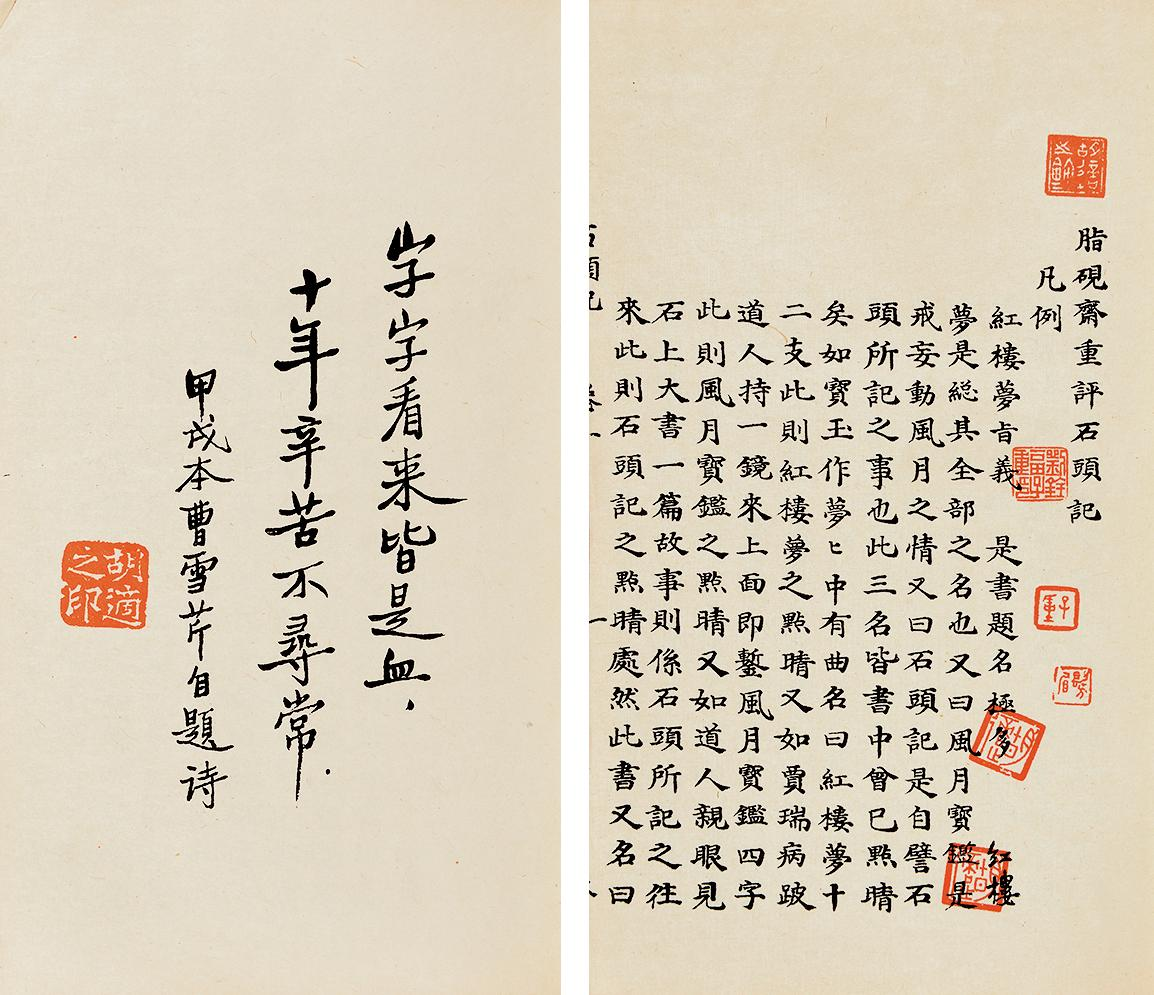 脂硯齋重評石頭記
凡例
紅樓夢旨義 是書題名極多 紅樓
夢是総其全部之名也又曰風月寶鑑是
戒妄動風月之情又曰石頭記是自譬石
頭所記之事也此三名皆書中曾已點睛
矣如寶玉作夢ヒ中有曲名曰紅樓夢十
二支此則紅樓夢之點睛又如賈瑞病跛
道人持一鏡來上面即鏨風月寶鑑四字
此則風月寶鑑之點睛又如道人親眼見
石上大書一篇故事則係石頭所記之往
來此則石頭記之點睛處然此書又名曰
石頭記 卷一 一
劉銓福子重印
子重
字字看来皆是血,
十年辛苦不尋常.
甲戌本曹雪芹自題诗
胡適之印